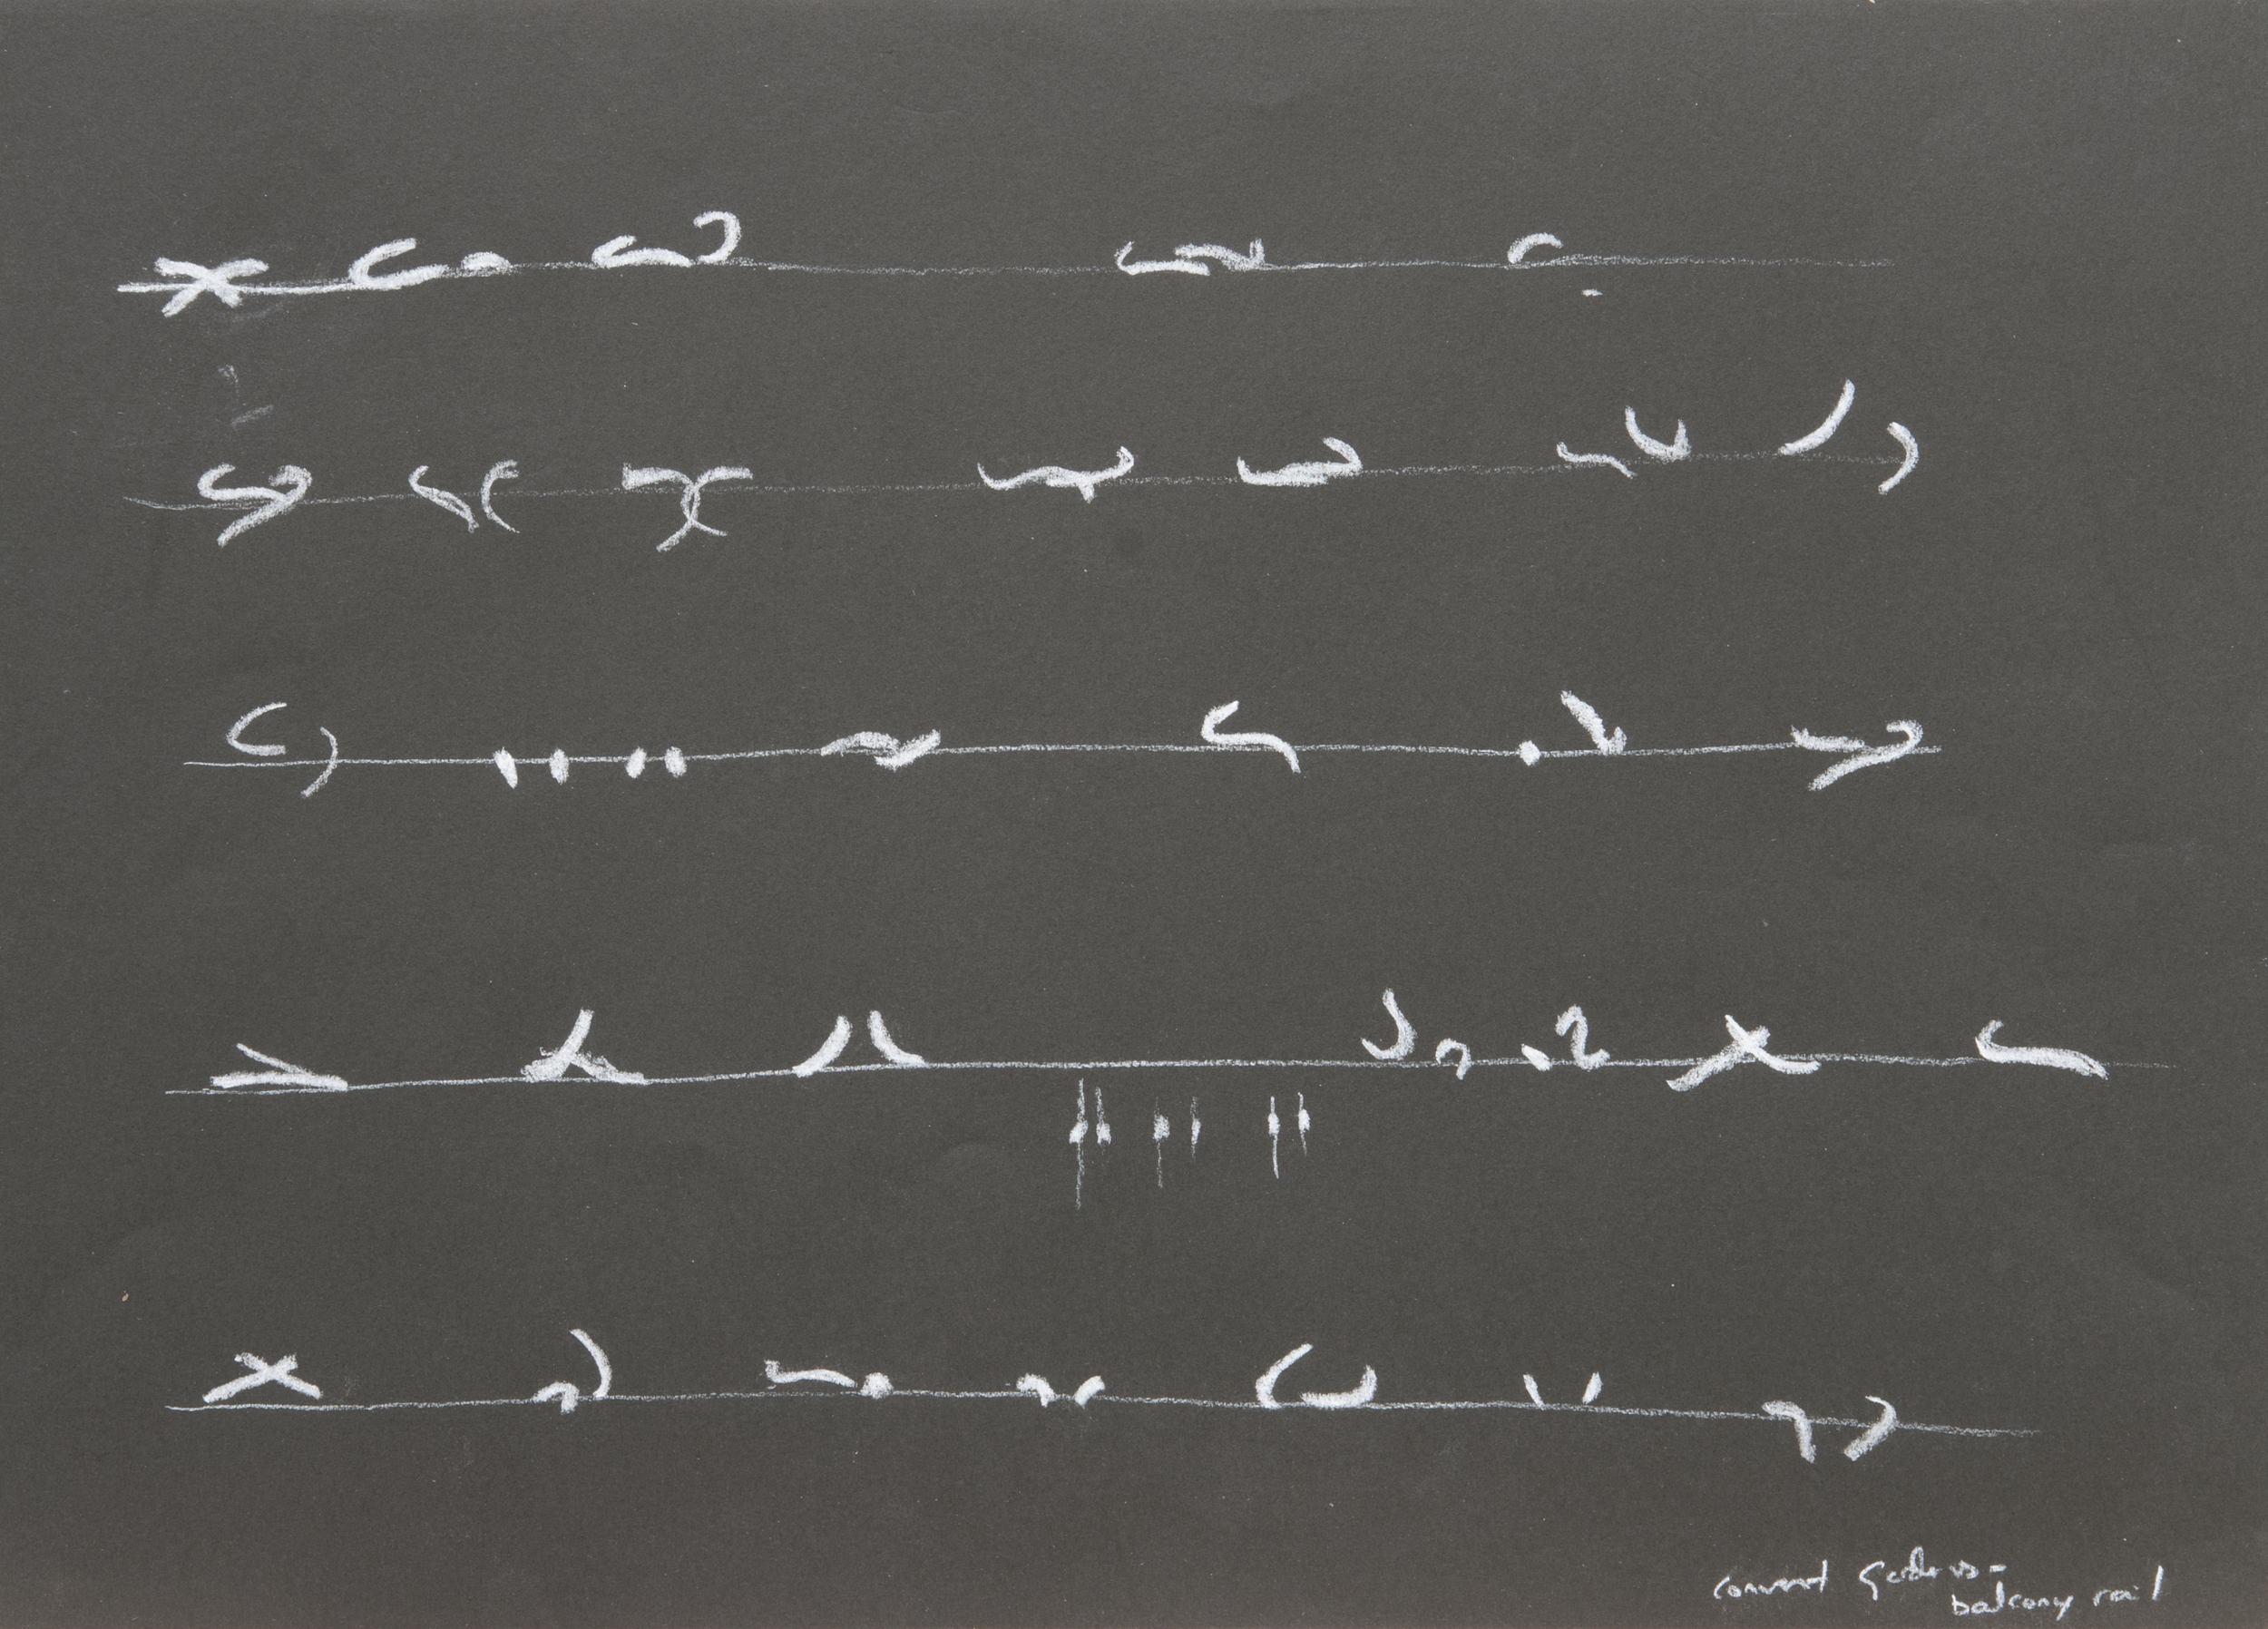 convent gardens -
balcony rail